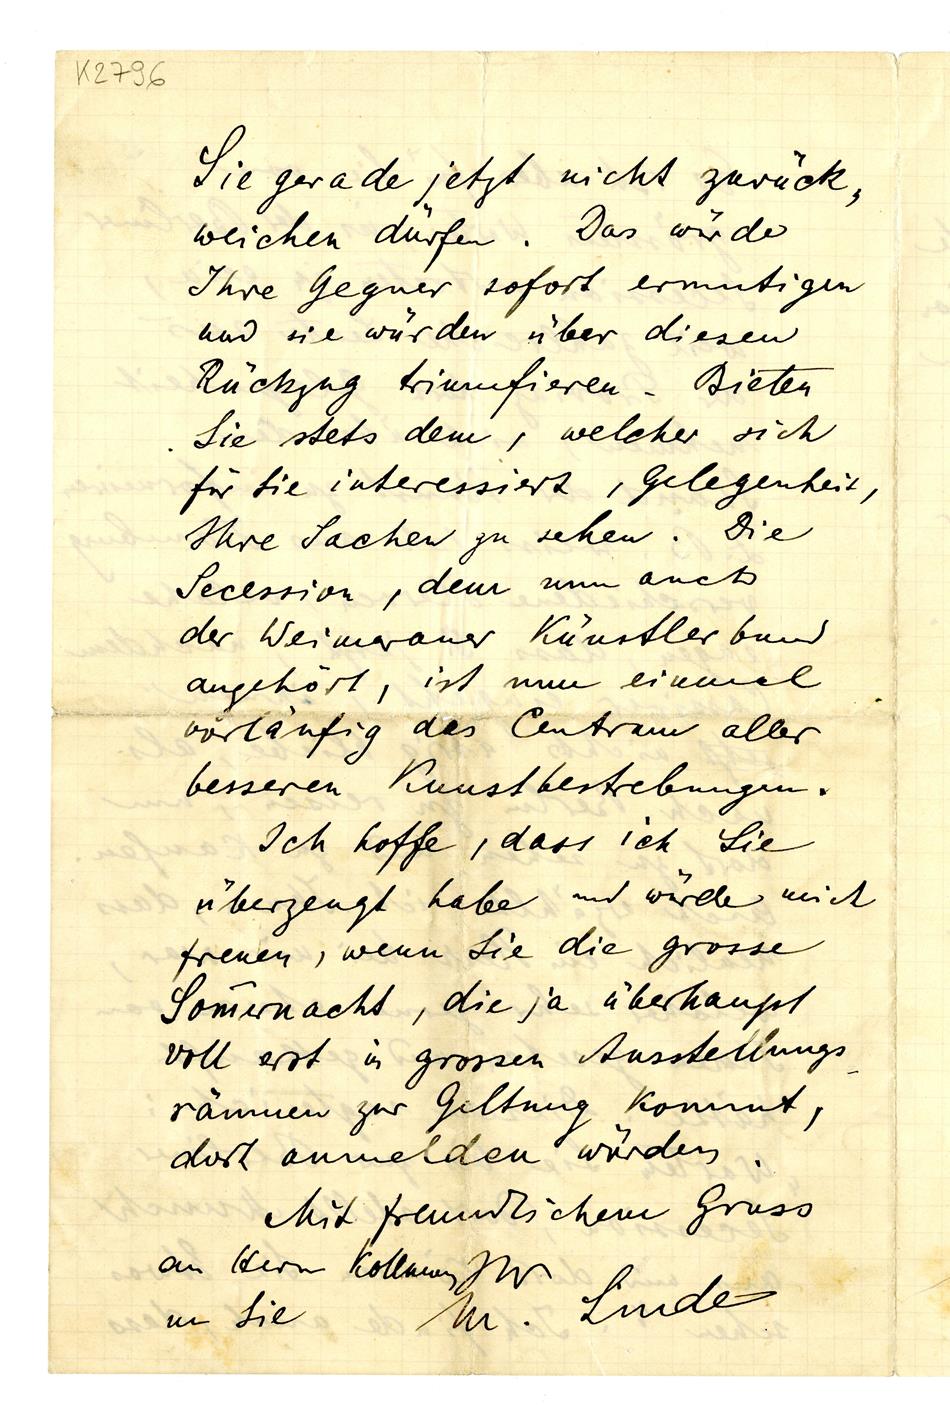 K2796
Sie gerade jetzt nicht zurück,
weichen dürfen. Das würde
Ihre Gegner sofort ermutigen
und sie würden über diesen
Rückzug triumfieren. Bieten
Sie stets dem, welcher sich
für Sie interessiert, Gelegenheit,
Ihre Sachen zu sehen. Die
Secession, dem nun auch
der Weimeraner Künstlerbund
angehört, ist nun einmal
vorläufig das Centrum aller
besseren Kunstbestrebungen.
Ich hoffe, dass ich Sie
überzeugt habe und würde mich
freuen, wenn Sie die grosse
Som̄ernacht, die ja überhaupt
voll erst in grossen Ausstellungs-
räumen zur Geltung kommt,
dort anmelden würden.
Mit freundlichem Gruss
an Herrn Kollmann Ihr
un Sie M. Linde